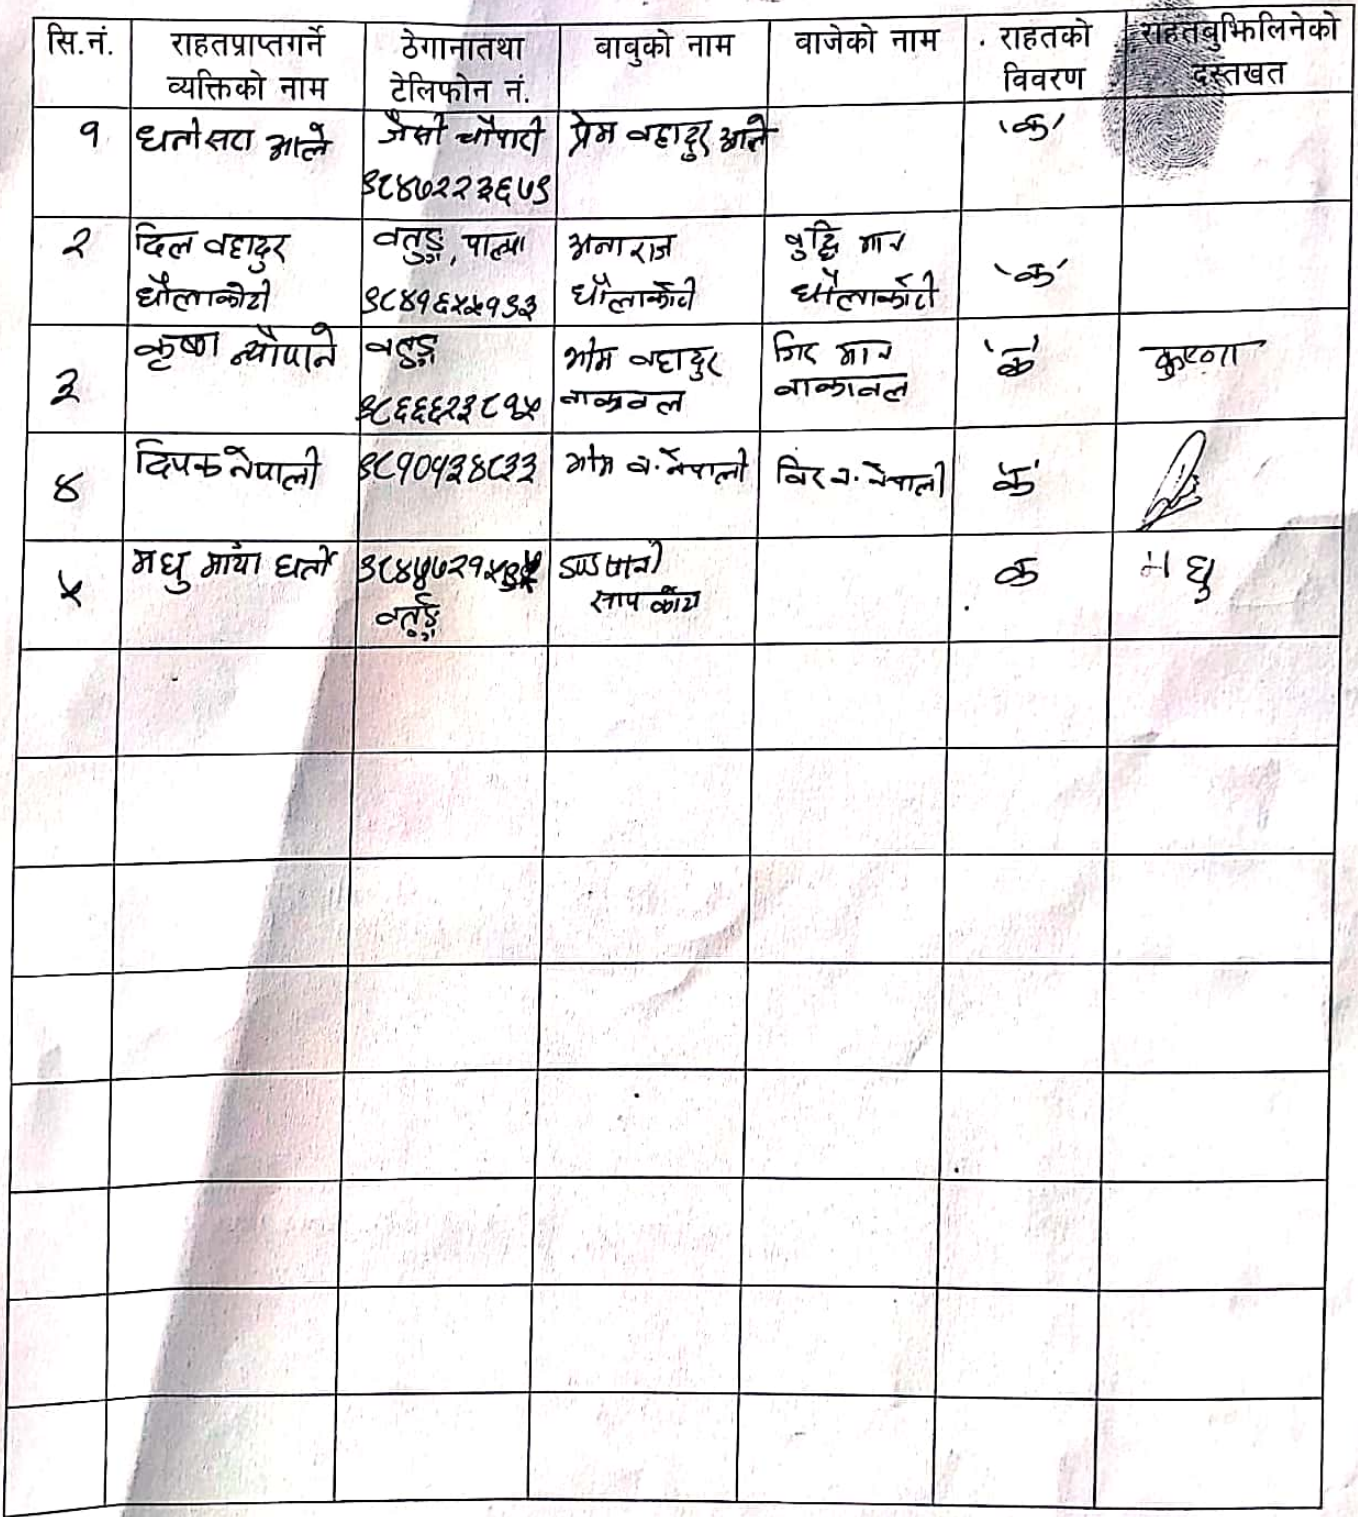 सि.नं. राहतप्राप्तगर्ने व्यक्तिको नाम ठेगानातथा टेलिफोन नं. वावुको नाम वाजेको नाम राहतको विवरण राहतबुझिलिनेको दस्तखत
१ धतीसरा आले जैसी चौपारी ९८४७२२३६७९ प्रेम वहादुर आले 'क'
२ दिल वहादुर धौलाकोटी वतुङ, पाल्पा ९८४१६५५१९३ अनाराज धौलाकोटी वुद्धि मान धौलाकोटी 'क'
३ कृष्णा न्यौपाने वतुङ ९८६६६२३८१५ भीम वहादुर वाकावल जिर मान वाकावल 'क' कृष्णा
४ दिपक नेपाली ९८१०१३४८३३ भीम व. नेपाली विर व. नेपाली 'क'
५ मधु माया घर्ती वतुङ क मधु